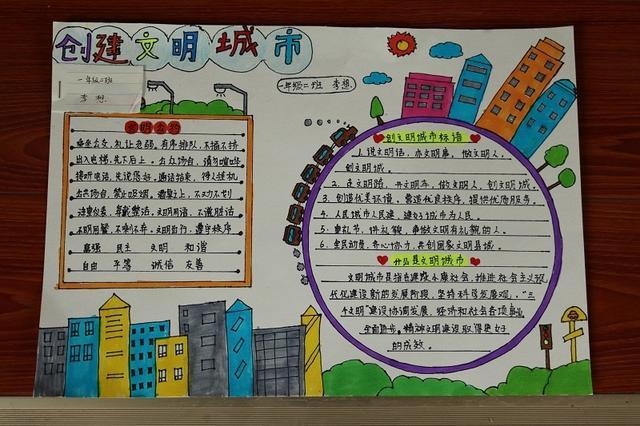 创建文明城市
一年级二班
李想.
一年级二班 李想.
文明公约
乘坐公交,礼让老弱,有序排队,不插不挤
出入电梯,先下后上。公众场合,请勿喧哗
接听电话,先说您好,通话结束,待人挂机
公共场合,禁止吸烟。
不明网警,不刺不弃,文明出行,遵守秩序
富强 民主 文明 和谐
自由 平等 诚信 友善
创文明城市标语
1.说文明话,办文明事,做文明人,
创文明城。
2.走文明路,开文明车,做文明人,创文明城。
3.创造优美环境,营造优良秩序,提供优质服务。
4.人民城市人民建,建好城市为人民。
5.重礼节、讲礼貌,争做文明有礼貌的人。
6.全民动员,齐心协力,共创国家文明县城。
什么是文明城市
文明城市是指在建成小康社会,推进社会主义现
代化建设新的发展阶段,坚持科学发展观,"三
个文明"建设协调发展,经济和社会各项事业
全面进步,精神文明建设取得更好
的成效。